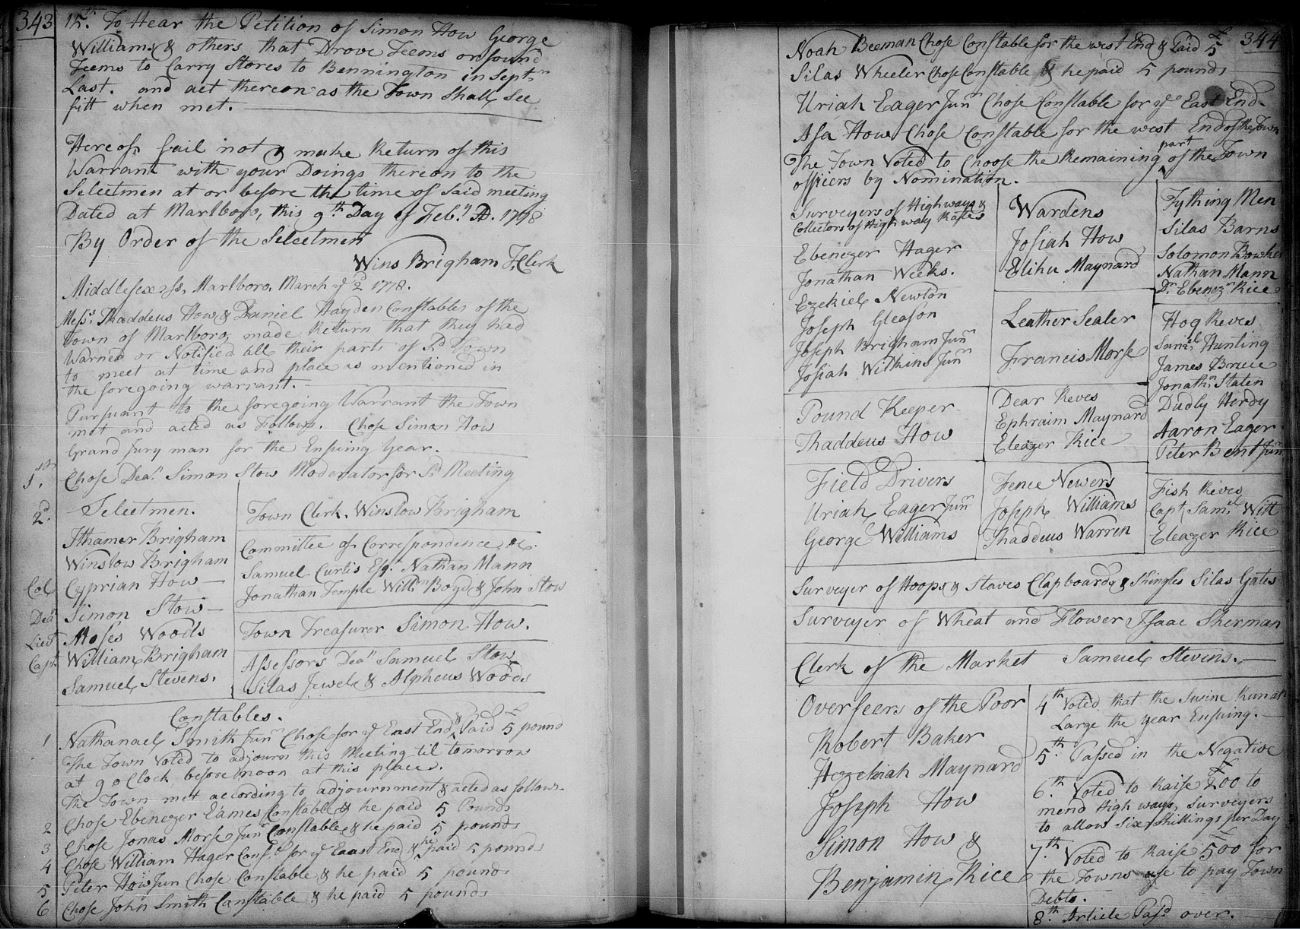 343
15th To Hear the Petition of Simon How George
Williams & others that Drove Teems or found
Teems to Carry Stores to Bennington in Septr
Last. and act thereon as the Town Shall see
fitt when met.
Hereof fail not & make Return of this
Warrant with your Doings thereon to the
Selectmen at or before the time of said meeting
Dated at Marlboro, this 9th Day of Feby AD. 1778
By Order of the Selectmen
Wins Brigham T. Clerk
Middlesex ss, Marlboro, March ye 2 1778.
Messrs Thaddeus How & Daniel Hayden Constables of the
Town of Marlboro, made Return that they had
Warned or Notified all their parts of sd Town
to meet at time and place as mentioned in
the foregoing warrant.
Pursuant to the foregoing Warrant the Town
met and acted as follows. Chose Simon How
Grand Jury man for the Ensuing Year.
1st. Chose Deac. Simon Stow Moderator for sd Meeting
2d. Selectmen.
Ithamer Brigham
Winslow Brigham
Col Cyprian How
Dea Simon Stow
Lieut Moses Woods
Capt William Brigham
Samuel Stevens.
Town Clerk. Winslow Brigham
Committee of Correspondence &c.
Samuel Curtis Esq. Nathan Mann
Jonathan Temple Willm Boyd & John Stow
Town Treasurer Simon How.
Assessors Dean Samuel Stow
Silas Jewel & Alpheus Woods
Constables.
1 Nathanael Smith Jun Chose for ye East End & paid £5 pound
The Town Voted to adjourn this Meeting til tomorrow
at 9 o Clock before noon at this place.
The Town met according to adjournment & acted as follows
2 Chose Ebenezer Eames Constable & he paid 5 Pounds
3 Chose Jonas Morse Jun Constable & he paid 5 pounds
4 Chose William Hager Const for ye East End & he paid 5 pounds
5 Peter How Jun Chose Constable & he paid 5 pounds
6 Chose John Smith Constable & he paid 5 pounds
344
Noah Beeman Chose Constable for the west End & Paid £5
Silas Wheeler Chose Constable & he paid 5 pounds
Uriah Eager Junr Chose Constable for ye East End
Asa How Chose Constable for the west End of the Town
The Town Voted to Choose the Remaining part of the Town
officers by Nomination.
Surveyors of Highways &
Collectors of Highway Rates
Ebenezer Hager
Jonathan Weeks.
Ezekiel Newton
Joseph Gleason
Joseph Brigham Junr
Josiah Wilkins Junr
Wardens
Josiah How
Elihu Maynard
Leather Sealer
Francis Morse
Tything Men
Silas Barns
Solomon Bowker
Nathan Mann
Dr. Ebenezr Rice
Hog Reves
Saml Hunting
James Bruce
Jonathn Staten
Dudly Hardy
Aaron Eager
Peter Bent Junr
Pound Keeper
Thaddeus How
Dear Reves
Ephraim Maynard
Eleazer Rice
Field Drivers
Uriah Eager Junr
George Williams
Fence Vewers
Joseph Williams
Thaddeus Warren
Fish Reves
Capt. Samel Witt
Eleazer Rice
Surveyer of Hoops & Staves Clapboards & Shingles Silas Gates
Surveyer of Wheat and Flower Isaac Sherman
Clerk of the Market Samuel Stevens.
Overseers of the Poor
Robert Baker
Hezekiah Maynard
Joseph How
Simon How &
Benjamin Rice
4th Voted that the Swine Run at
Large the year Ensuing.
5th Passed in the Negative
6th Voted to Raise £200 to
mend High ways, Surveyers
to allow Six Shillings per Day
7th Voted to Raise £500 for
the Towns use to pay Town
Debts.
8th Article Pasd over.